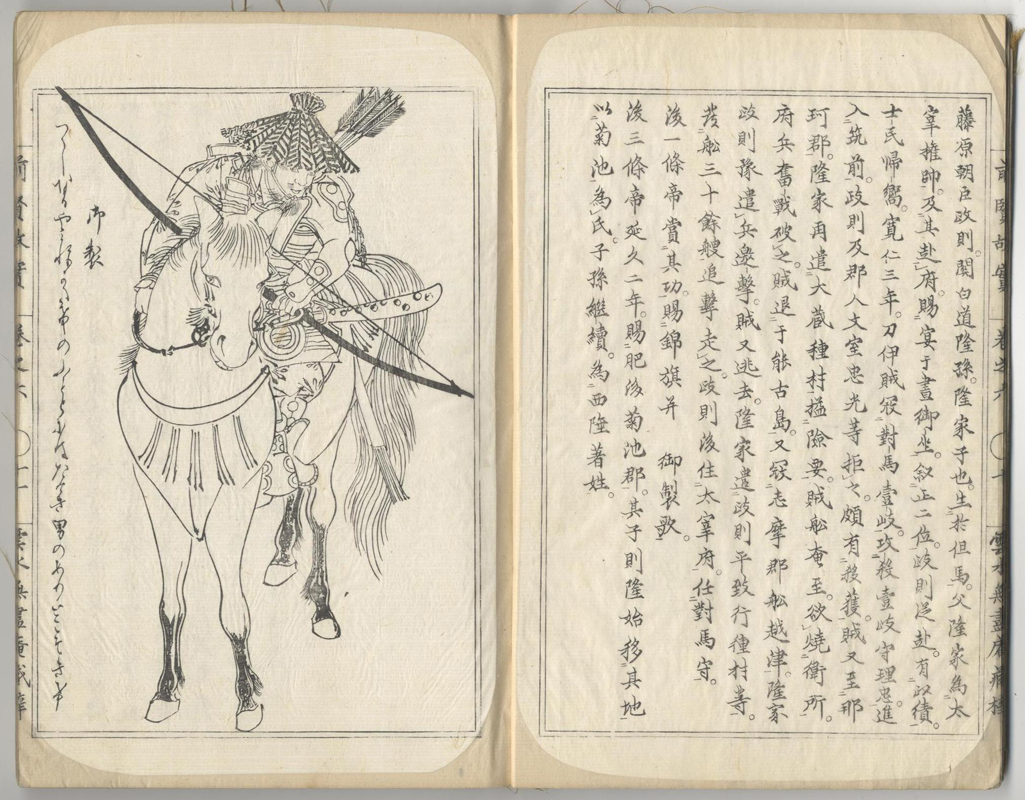 藤原朝臣政則。関白道隆孫。隆家子也。生於但馬。父隆家為太
宰権帥。及其赴府。賜宴于昼御坐。叙正二位。政則従赴。有政績。
士民帰嚮。寛仁三年。刀伊賊寇対馬壹岐。攻殺壹岐守理忠。進
入筑前。政則及郡人文室忠光等拒之。頗有殺獲。賊又至那
珂郡。隆家再遣大蔵種村搤険要。賊舩奄至。欲焼衛所。
府兵奮戦破之。賊退于能古島。又寇志摩郡舩越津。隆家
政則豫遣兵邀撃。賊又逃去。隆家遣政則平致行種村等。
発舩三十餘艘追撃走之。政則後住太宰府。任対馬守。
後一條帝賞其功。賜錦旗并 御製歌。
後三條帝延久二年。賜肥後菊池郡。其子則隆始移其地
以菊池為氏。子孫継続。為西陲著姓。
御製
前賢故實
巻之六